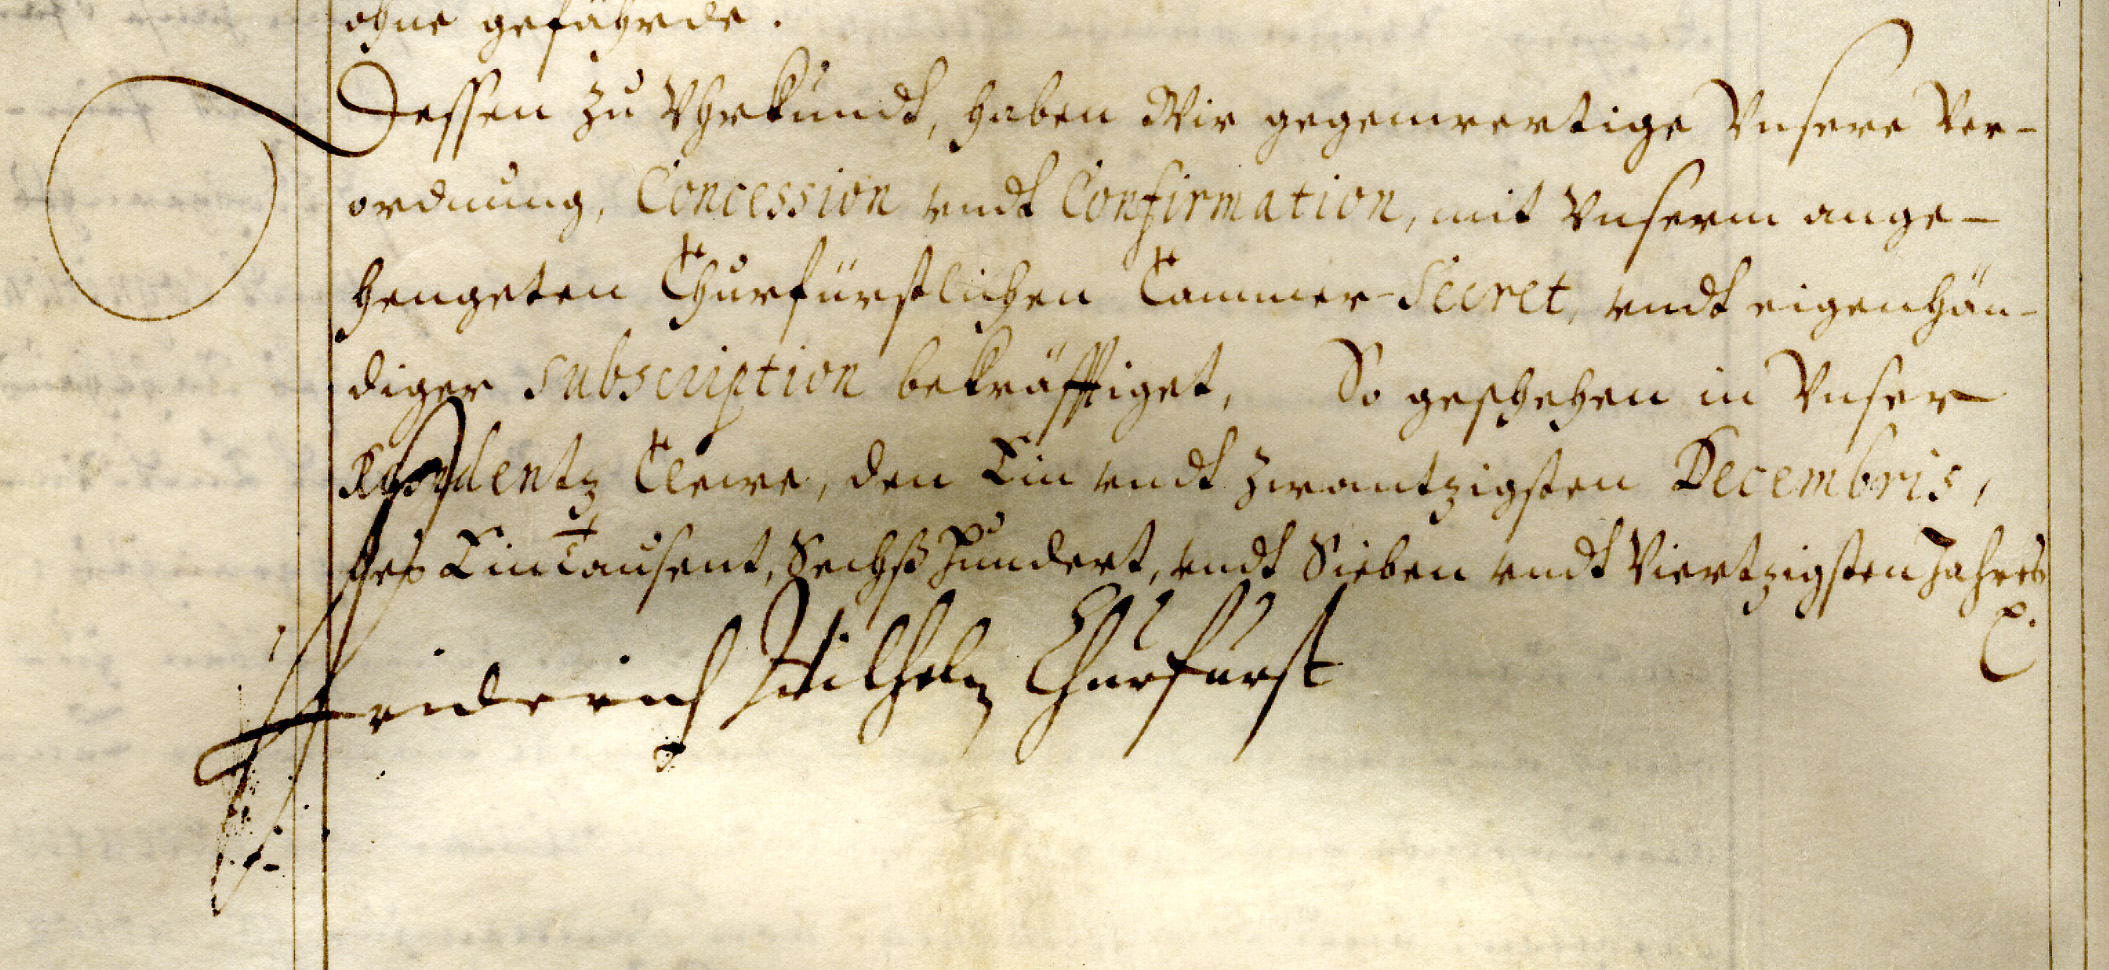 ohne gefährde.
Dessen zu Vhrkundt, haben Wir gegenwertige Vnsere Ver-
ordnung, Concession vndt Confirmation, mit Vnserm ange-
hengeten Churfürstlichen Cammer-Secret, vndt eigenhän-
diger subscription bekräfftiget, So geschehen in Vnser
Residentz Cleve, den Ein vndt zwantzigsten Decembris,
deß Eintausent, Sechßhundert, vndt Sieben vndt Viertzigsten Jahres
Friderich Wilhelm Churfurst